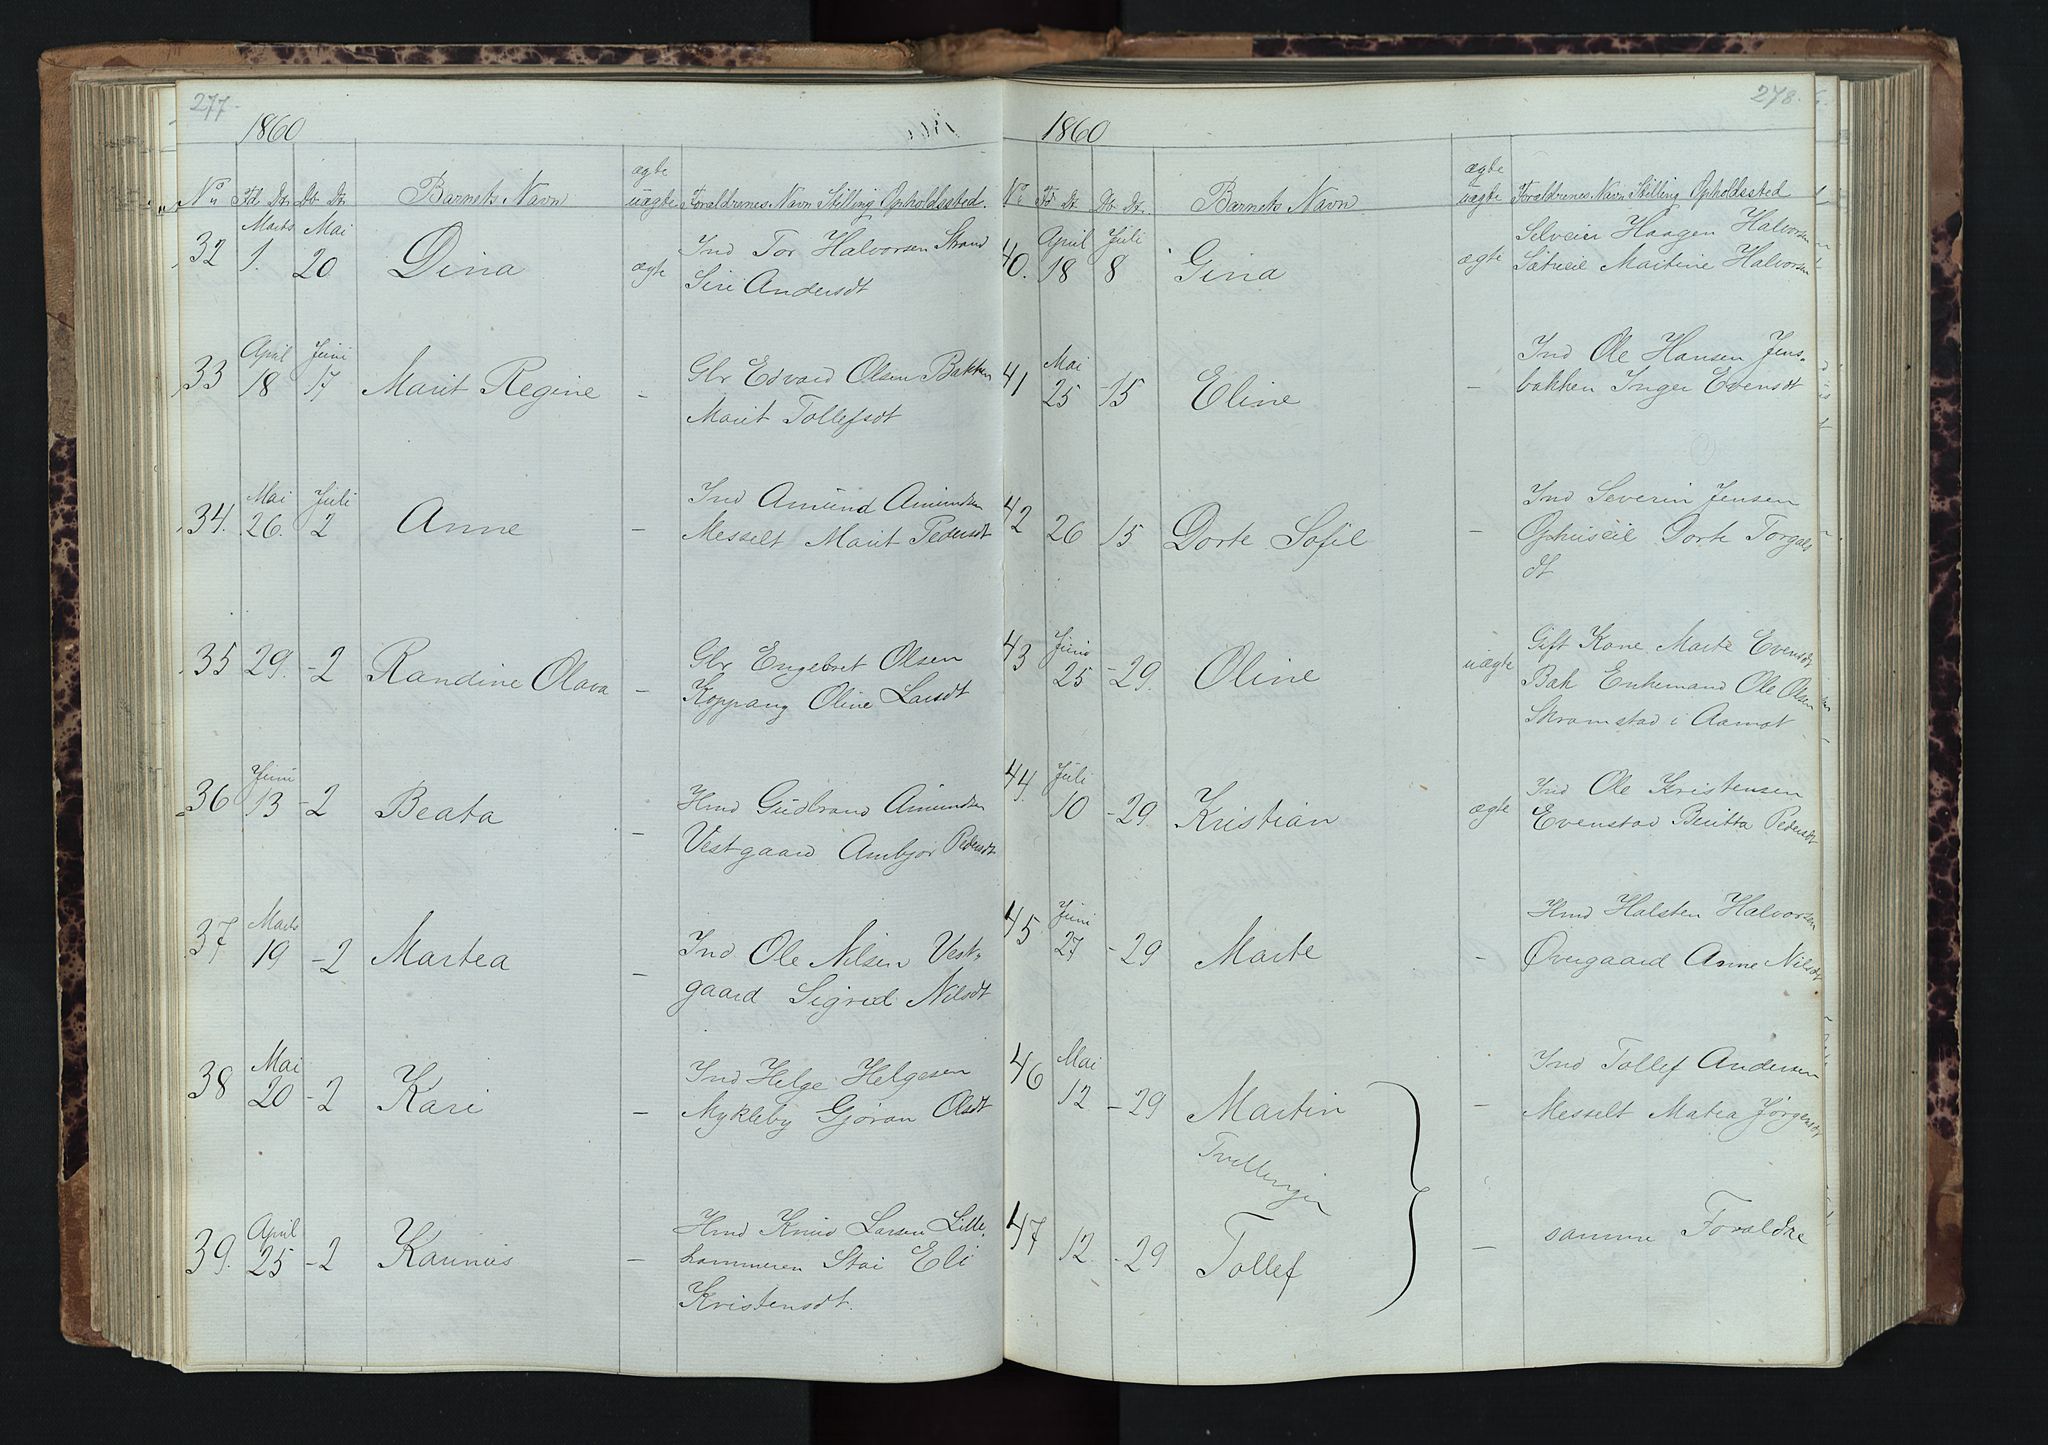 277
1860
No Fd Dr Db Dr Barnets Navn ægte uægte Foraldrenes Navn Stilling Opholdssted.
Marts Mai
32 1. 20 Dina ægte Ind Tor Halvorsen Strand
Siri Andersdt
April Juni
33 18 17 Marit Regine - Gbr Edvard Olsen Bakken
Marit Tollefsdt
Mai Juli
34. 26. 2 Anne - Ind Amund Amundsen
Messelt Marit Pedersdt
35 29. -2 Randine Olava - Gbr Engebret Olsen
Koppang Oline Larsdt
Juni
36 13 -2 Beata - Hmd Gudbrand Amundsen
Vestgaard Ambjør Pedersdt
Marts
37 19 -2 Martea - Ind Ole Nilsen Vest-
gaard Sigrid Nilsdt
Mai
38 20 -2 Kari - Ind Helge Helgesen
Mykleby Gjøran Olsdt
April
39. 25 -2 - Hmd Knud Larsen Lille-
hammeren Stai Eli
Kristensdt.
278.
1860
No Fd Dr Db Dr. Barnets Navn ægte uægte Foraldrenes Navn Stilling Opholdssted
April Juli
40. 18 8 Gina ægte Selveier Haagen Halvorsen
Martine Halvorsen
Mai
41 25 -15 Eline - Ind Ole Hansen Jens-
bakken Inger Evensdt
42 26 -15 Dorte Sofie - Ind Severin Jensen
Ophuseie Dorte Torgals
dt
Juni
43 25 -29. Oline uægte Gift Kone Marte Evensdt
Bak Enkemand Ole Olsen
Skramstad i Aamot
Juli
44. 10 -29 Kristian ægte Ind Ole Kristensen
Evenstad Beritta Pedersdt
Juni
45 27 -29 Marte - Hmd Halsten Halvorsen
Øvergaard Anne Nilsdt
Mai
46 12 -29 Martin - Ind Tollef Andersen
Messelt Matea Jørgensdt
Tvillinger
47 12. -29. Tollef - samme Foraldre